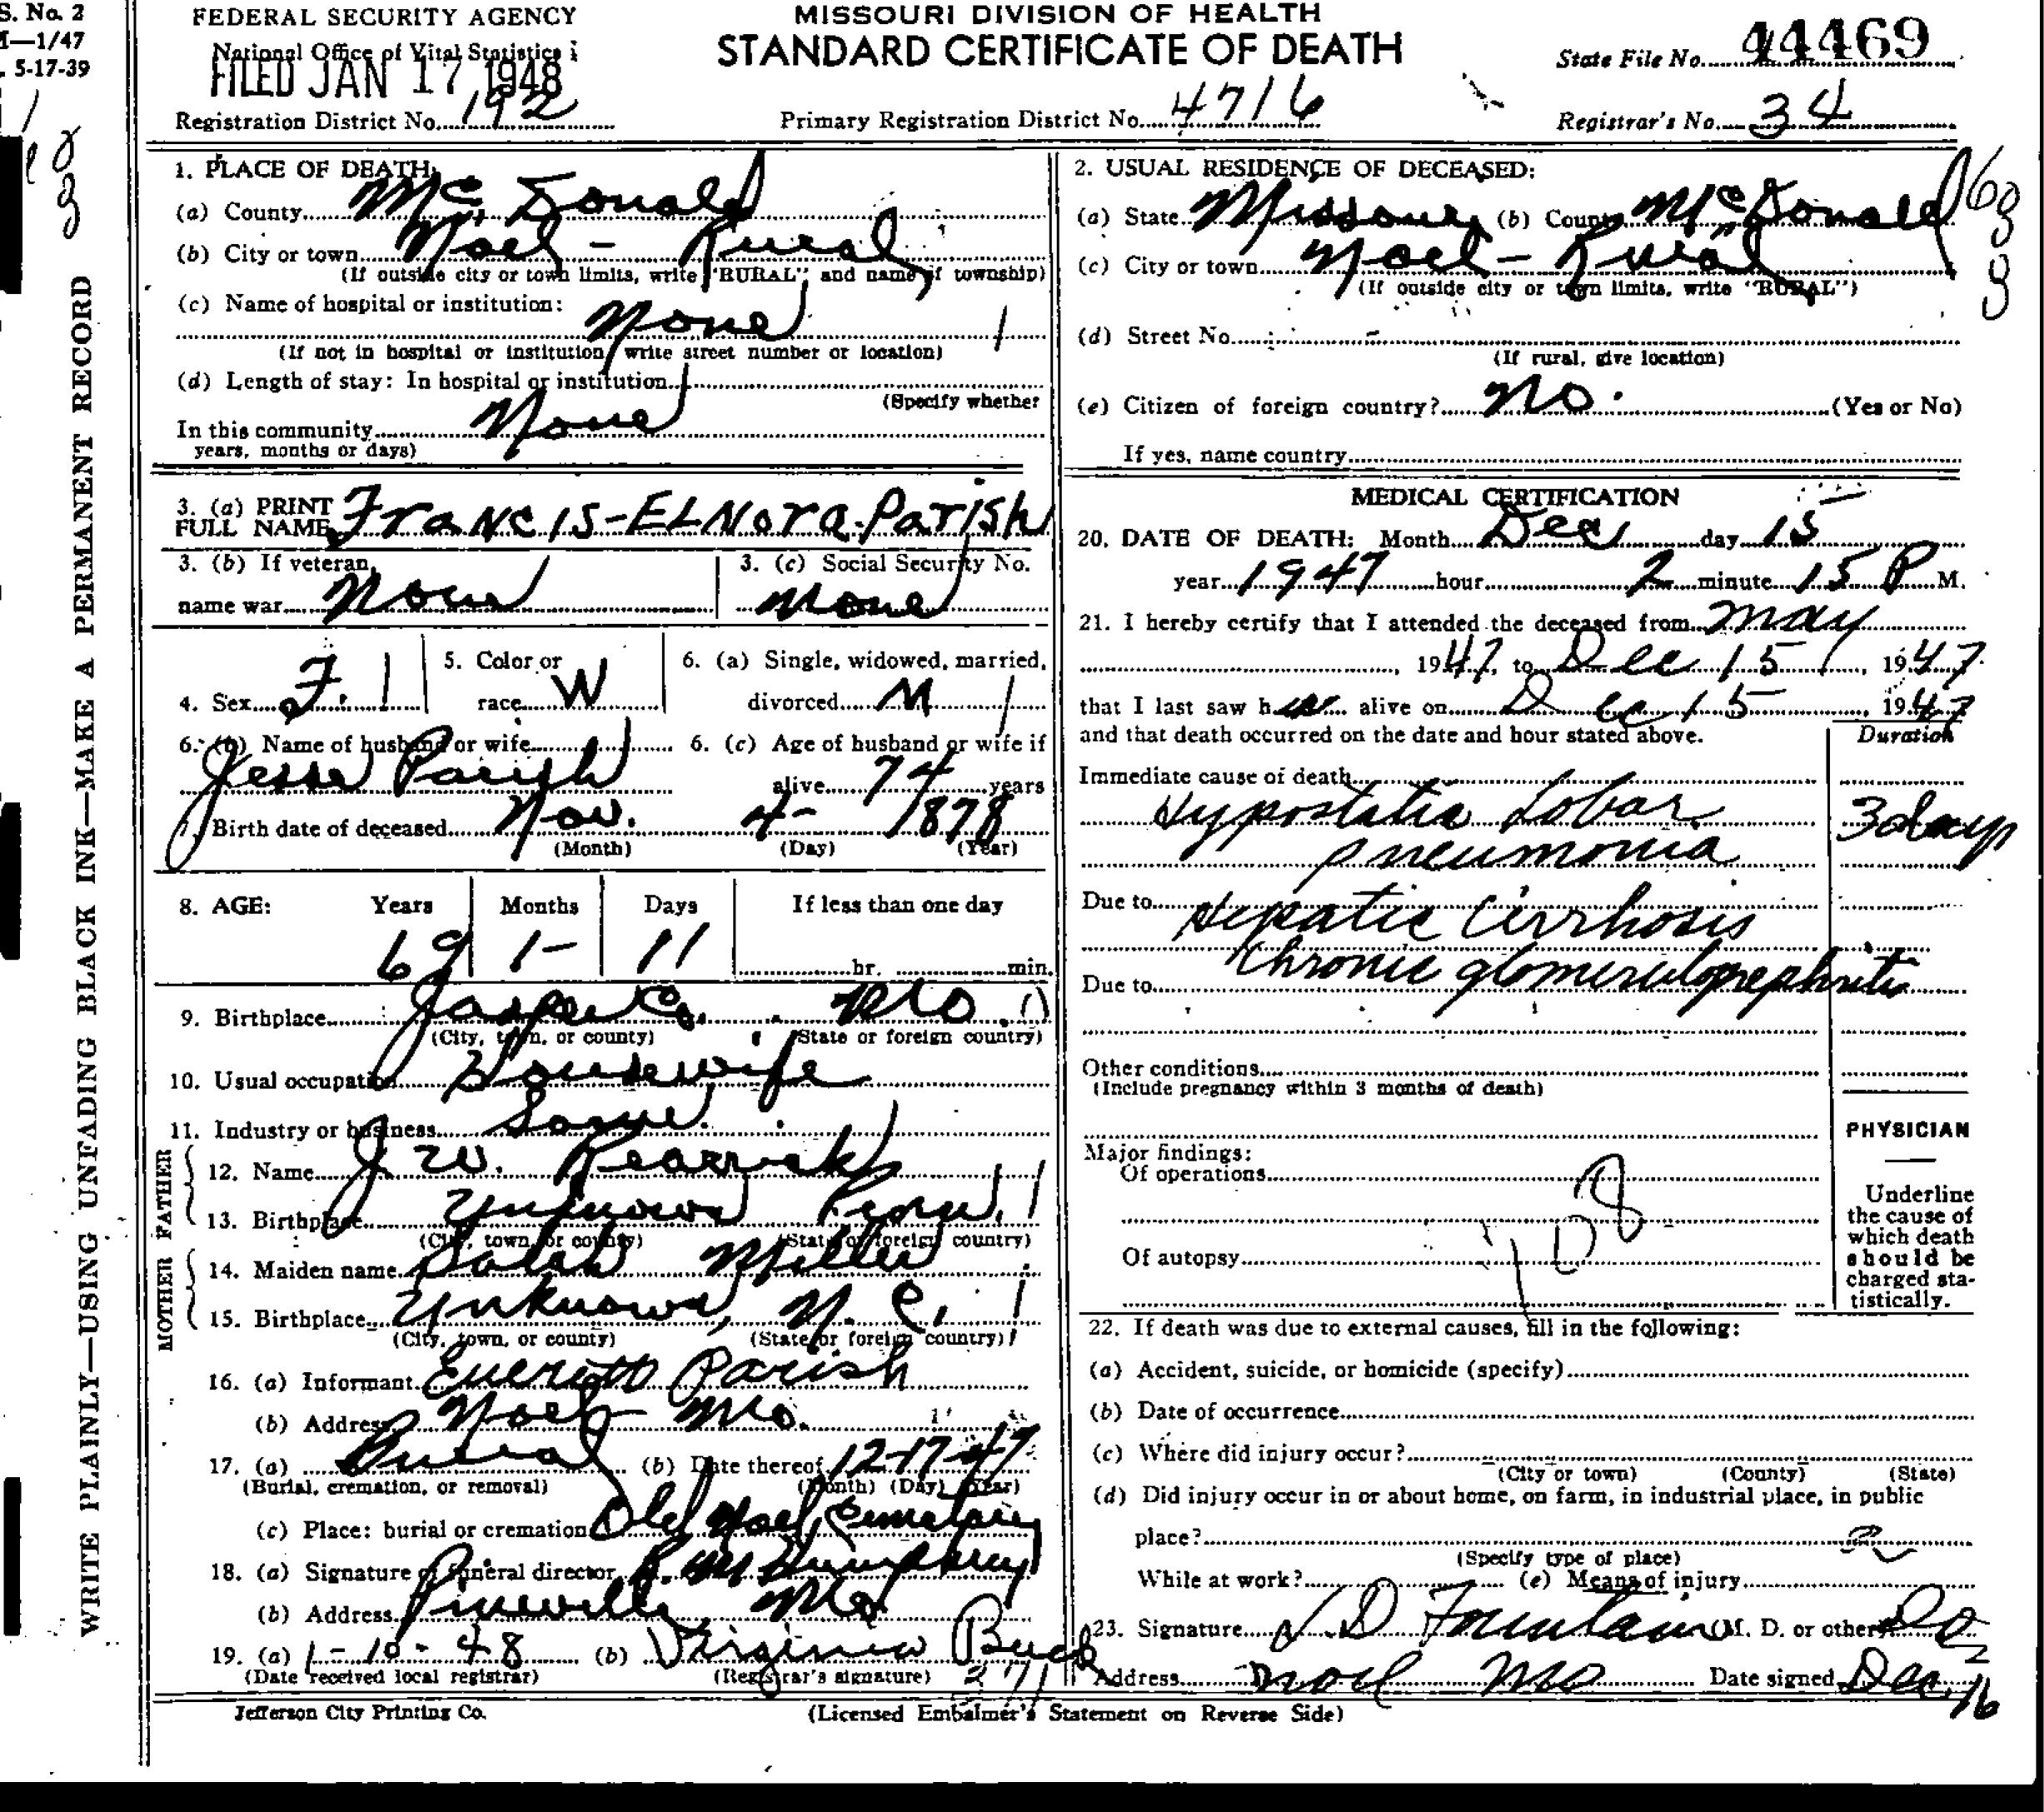 S. No. 2
M—1/47
. 5-17-39
WRITE PLAINLY—USING UNFADING BLACK INK—MAKE A PERMANENT RECORD
FEDERAL SECURITY AGENCY
National Office of Vital Statistics
FILED JAN 17 1948
Registration District No. 192
MISSOURI DIVISION OF HEALTH
STANDARD CERTIFICATE OF DEATH
Primary Registration District No. 4716
State File No. 44469
Registrar's No. 34
1. PLACE OF DEATH:
(a) County McDonald
(b) City or town Noel - Rural
(If outside city or town limits, write "RURAL" and name of township)
(c) Name of hospital or institution:
None
(If not in hospital or institution, write street number or location)
(d) Length of stay: In hospital or institution
(Specify whether
In this community None
years, months or days)
2. USUAL RESIDENCE OF DECEASED:
(a) State Missouri (b) County McDonald
(c) City or town Noel - Rural
(If outside city or town limits, write "RURAL")
(d) Street No. -
(If rural, give location)
(e) Citizen of foreign country? No. (Yes or No)
If yes, name country
3. (a) PRINT
FULL NAME Francis-ELNora-Parish
3. (b) If veteran,
name war None
3. (c) Social Security No.
None
4. Sex F. 1
5. Color or
race W
6. (a) Single, widowed, married,
divorced M 1
6. (b) Name of husband or wife
Jesse Parish
6. (c) Age of husband or wife if
alive 74 years
7. Birth date of deceased Nov. 4- 1878
(Month) (Day) (Year)
8. AGE: Years Months Days If less than one day
69 1- 11 hr. min.
9. Birthplace Jasper Co. Mo. 0
(City, town, or county) (State or foreign country)
10. Usual occupation Housewife
11. Industry or business Same.
FATHER
12. Name J. W.
13. Birthplace Unknown Penn. 1
(City, town, or county) (State or foreign country)
MOTHER
14. Maiden name Sarah Miller
15. Birthplace Unknown, N. C. 1
(City, town, or county) (State or foreign country)
16. (a) Informant Everett Parish
(b) Address Noel - Mo.
17. (a) Burial (b) Date thereof 12-17-47
(Burial, cremation, or removal) (Month) (Day) (Year)
(c) Place: burial or cremation Old Noel Cemetary
18. (a) Signature of funeral director R. M Humphrey
(b) Address Pineville Mo.
19. (a) 1-10-48 (b) Virginia Buck
(Date received local registrar) (Registrar's signature) 271
MEDICAL CERTIFICATION
20. DATE OF DEATH: Month Dec day 15
year 1947 hour 2 minute 15 P M.
21. I hereby certify that I attended the deceased from May
, 1947, to Dec 15, 1947
that I last saw her alive on Dec 15, 1947
and that death occurred on the date and hour stated above.
Duration
Immediate cause of death
Hypostatic Lobar
pneumonia
3 days
Due to Hepatic Cirrhosis
Due to Chronic glomerulonephritis
Other conditions
(Include pregnancy within 3 months of death)
Major findings:
Of operations
108
Of autopsy
PHYSICIAN
Underline
the cause of
which death
should be
charged sta-
tistically.
22. If death was due to external causes, fill in the following:
(a) Accident, suicide, or homicide (specify)
(b) Date of occurrence
(c) Where did injury occur?
(City or town) (County) (State)
(d) Did injury occur in or about home, on farm, in industrial place, in public
place?
(Specify type of place)
While at work? (e) Means of injury
23. Signature D Fountain (M. D. or other) DO
Address Noel Mo Date signed Dec. 16
Jefferson City Printing Co.
(Licensed Embalmer's Statement on Reverse Side)